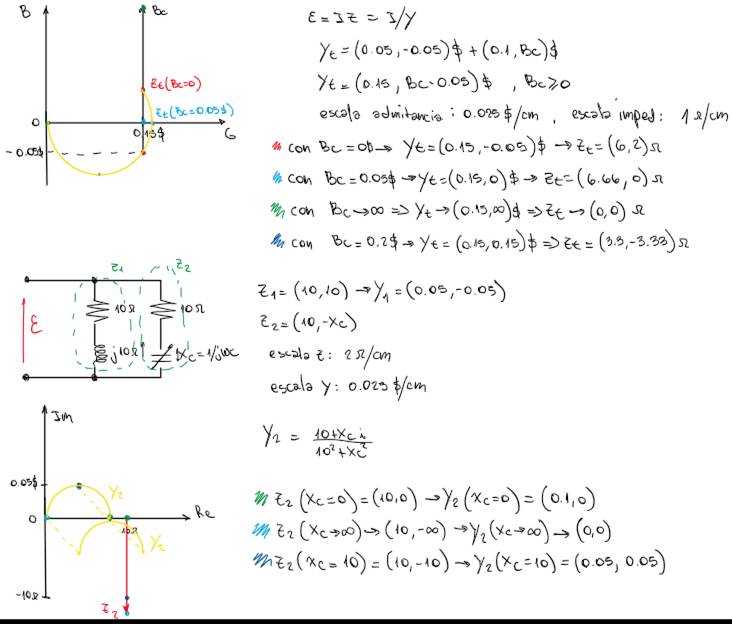 B
Bc
Zt(Bc=0)
Zt(Bc=0.05$)
0
0.15$
G
-0.05$
E = IZ = I/Y
Yt = (0.05, -0.05)$ + (0.1, Bc)$
Yt = (0.15, Bc-0.05)$ , Bc≥0
escala admitancia: 0.025 $/cm , escala imped: 1 Ω/cm
con Bc = 0$ → Yt = (0.15, -0.05)$ → Zt = (6, 2) Ω
con Bc = 0.05$ → Yt = (0.15, 0)$ → Zt = (6.66, 0) Ω
con Bc → ∞ => Yt → (0.15, ∞)$ => Zt → (0,0) Ω
con Bc = 0.2$ → Yt = (0.15, 0.15)$ => Zt = (3.3, -3.33) Ω
Z1
Z2
10Ω
10Ω
E
j10Ω
Xc = 1/jωc
Z1 = (10, 10) → Y1 = (0.05, -0.05)
Z2 = (10, -Xc)
escala Z: 2Ω/cm
escala Y: 0.025 $/cm
Y2 = 10+Xc i / 10²+Xc²
Im
0.05$
Y2
0
Re
10Ω
Y2
-10Ω
Z2
Z2 (Xc=0) = (10,0) → Y2 (Xc=0) = (0.1, 0)
Z2 (Xc→∞) → (10, -∞) → Y2 (Xc→∞) → (0,0)
Z2 (Xc = 10) = (10, -10) → Y2 (Xc=10) = (0.05, 0.05)